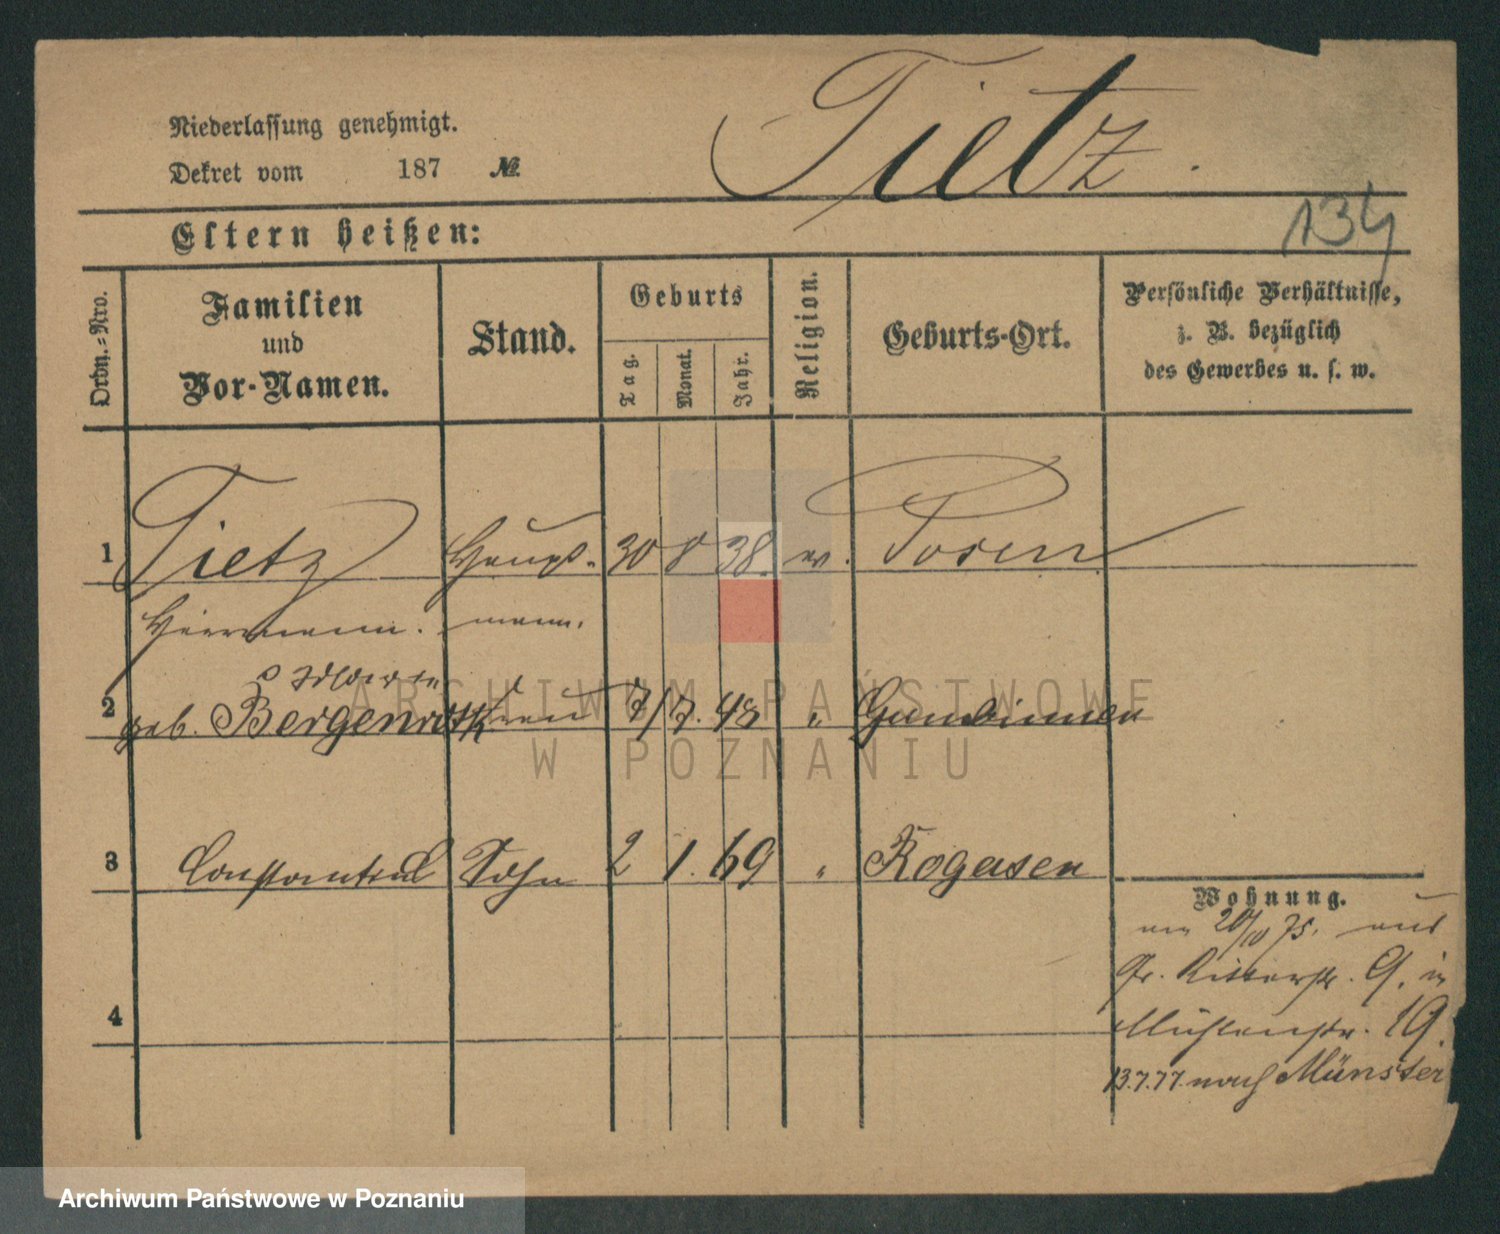 Niederlassung genehmigt.
Dekret vom 187 №
Tietz.
134
Eltern heißen:
Ordn.-Nro.
Familien
und
Vor-Namen.
Stand.
Geburts
Tag.
Monat.
Jahr.
Religion.
Geburts-Ort.
Persönliche Verhältnisse,
z. B. bezüglich
des Gewerbes u. s. w.
1 Tietz Haupt- 30 8 38. ev. Posen
Herrmann. mann.
2 geb. Bergenroth Frau 7/7. 48 " Gumbinnen
3 Constantin Sohn 2 1. 69 " Rogasen
4
Wohnung.
am 20/10 75. aus
Gr. Ritterstr. 9. in
Mühlenstr. 19.
13.7.77 nach Münster
ARCHIWUM PAŃSTWOWE
W POZNANIU
Archiwum Państwowe w Poznaniu